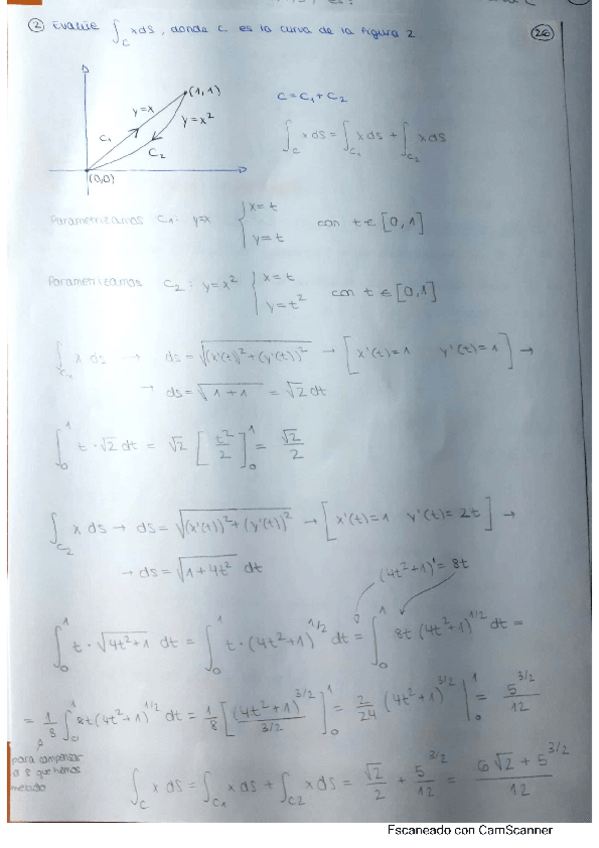 ② Evalúe ∫_C x ds, donde C es la curva de la figura 2
26
(1,1)
y=x
y=x²
C₁
C₂
(0,0)
C = C₁ + C₂
∫_C x ds = ∫_C₁ x ds + ∫_C₂ x ds
Parametrizamos C₁: y=x { x=t y=t con t ∈ [0,1]
Parametrizamos C₂: y=x² { x=t y=t² con t ∈ [0,1]
∫_C₁ x ds → ds = √((x'(t))²+(y'(t))²) → [x'(t)=1 y'(t)=1] →
→ ds = √(1+1) = √2 dt
∫₀¹ t·√2 dt = √2 [t²/2]₀¹ = √2/2
∫_C₂ x ds → ds = √((x'(t))²+(y'(t))²) → [x'(t)=1 y'(t)=2t] →
→ ds = √(1+4t²) dt
(4t²+1)' = 8t
∫₀¹ t·√(4t²+1) dt = ∫₀¹ t·(4t²+1)^1/2 dt = ∫₀¹ 8t (4t²+1)^1/2 dt =
= 1/8 ∫₀¹ 8t(4t²+1)^1/2 dt = 1/8 [(4t²+1)^3/2 / 3/2]₀¹ = 2/24 (4t²+1)^3/2 |₀¹ = 5^3/2 / 12
para compensar
el 8 que hemos
metido
∫_C x ds = ∫_C₁ x ds + ∫_C₂ x ds = √2/2 + 5^3/2 / 12 = (6√2 + 5^3/2) / 12
Escaneado con CamScanner